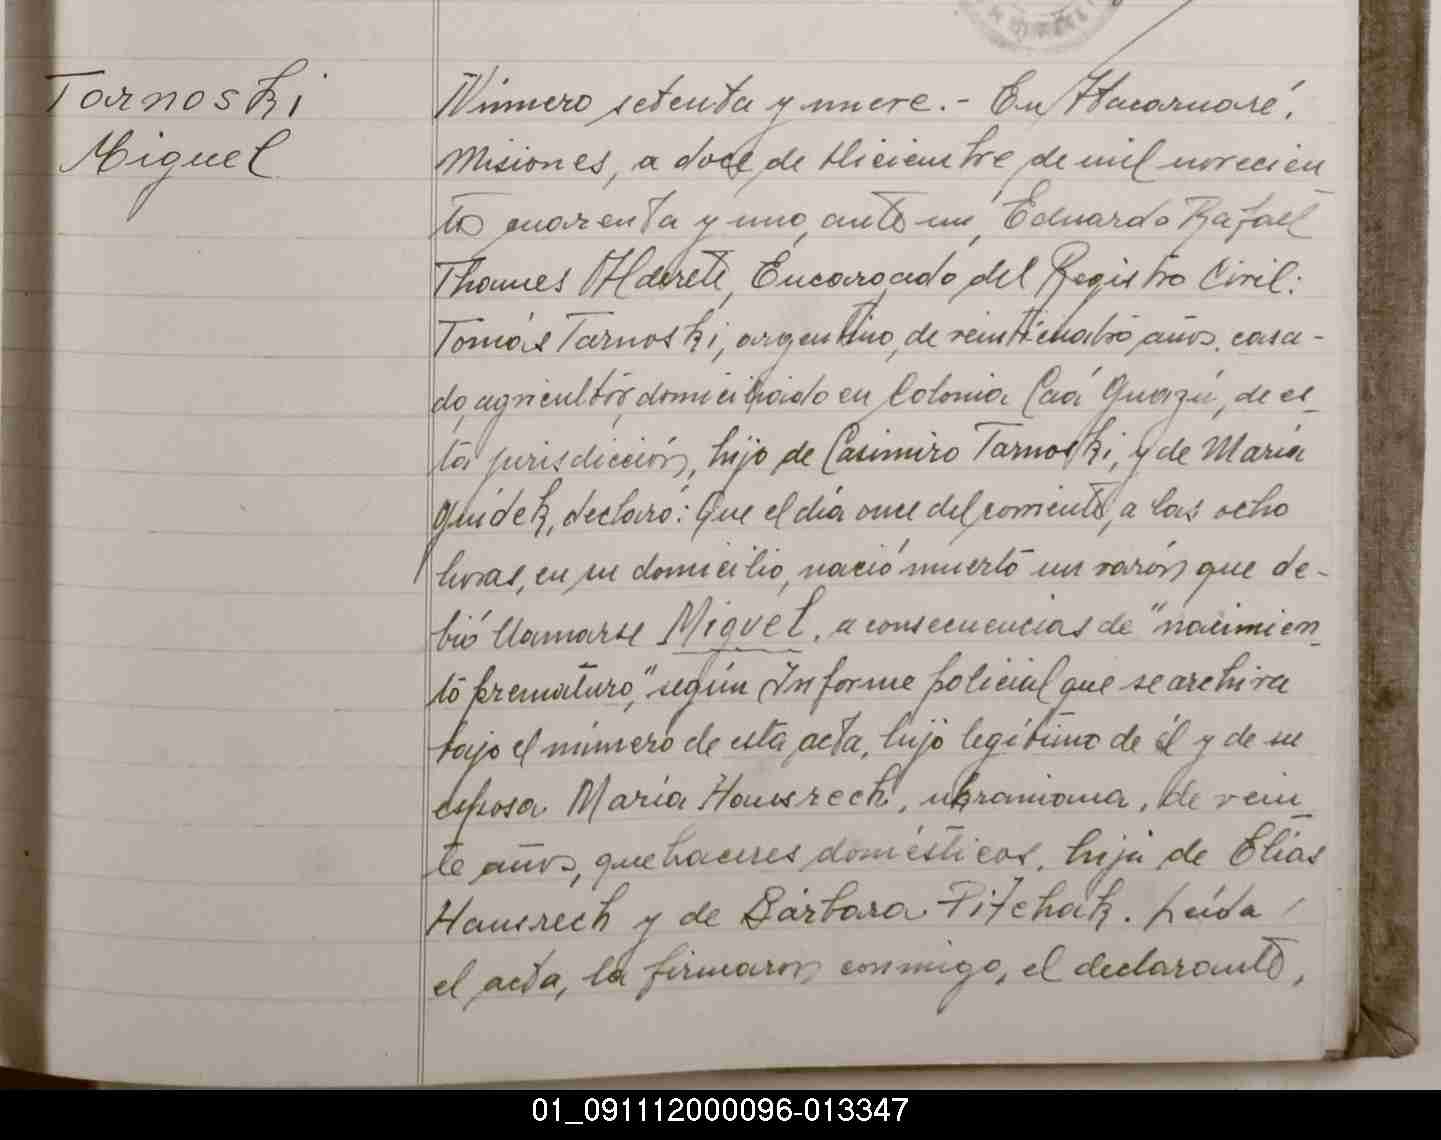 Tarnoski
Miguel
Número setenta y nueve.- En Itacaruaré,
Misiones, a doce de Diciembre de mil novecien
tos cuarenta y uno, ante mí, Eduardo Rafael
Thames Alderete, Encargado del Registro Civil:
Tomás Tarnoski, argentino, de veinticuatro años, casa-
do, agricultor, domiciliado en Colonia Caá Guazú, de es-
ta jurisdicción, hijo de Casimiro Tarnoski, y de María
Guidek, declaró: Que el día once del corriente, a las ocho
horas, en su domicilio, nació muerto un varón que de-
bió llamarse Miguel, a consecuencias de "nacimien-
to prematuro," según Informe policial que se archiva
bajo el número de esta acta, hijo legítimo de él y de su
esposa María Hausrech, ukraniana, de vein
te años, quehaceres domésticos, hija de Elías
Hausrech y de Bárbara Pitchak. Leída
el acta, la firmaron conmigo, el declarante,
01_091112000096-013347